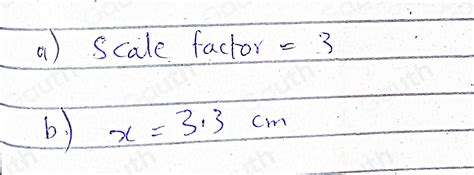 a) Scale factor = 3
b) x = 3.3 cm